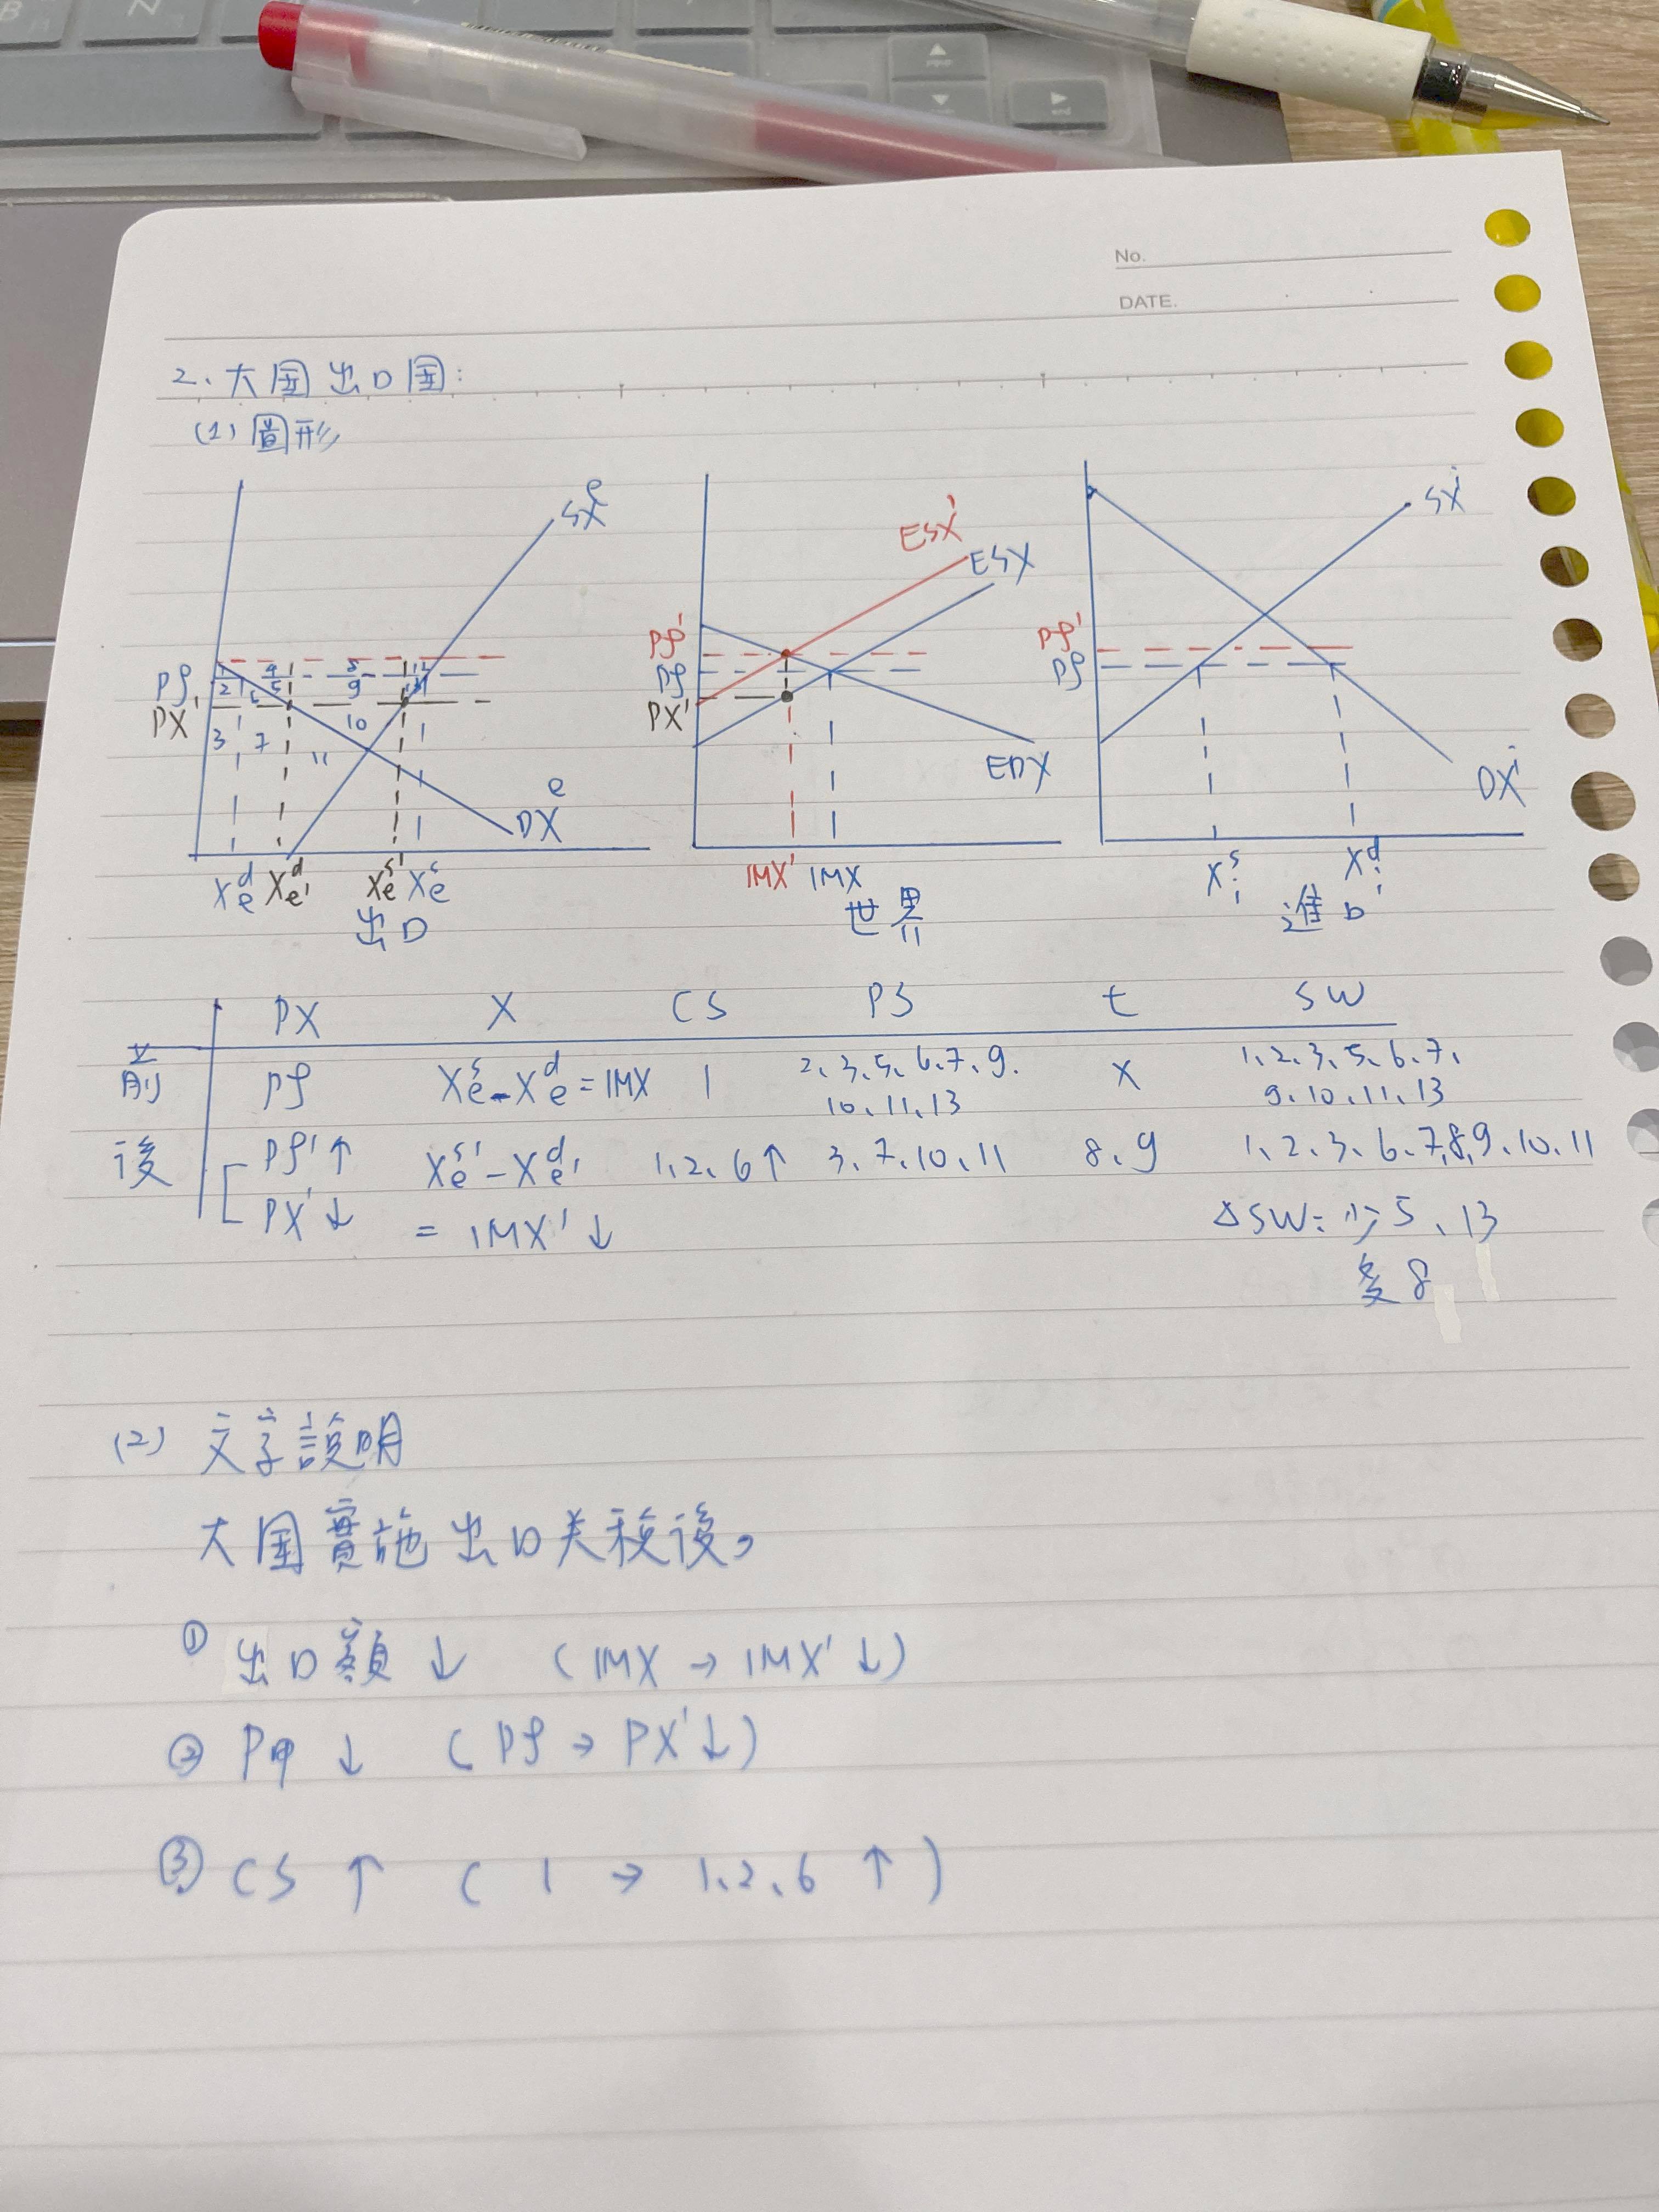 No.
DATE.
2、大国出口国：
(1) 圖形
SX^e
ESX'
ESX
SX^i
Pf'
Pf
PX'
1 4 8 12
2 5 9 13
6
3 7 10
11
DX^e
X_e^d X_e^d' X_e^s' X_e^s
出口
Pf'
Pf
PX'
EDX
IMX' IMX
世界
Pf'
Pf
DX^i
X_i^s X_i^d
進口
PX X CS PS t SW
前 Pf X_e^s-X_e^d=IMX 1 2、3、5、6、7、9、 X 1、2、3、5、6、7、
10、11、13 9、10、11、13
後 Pf'↑ X_e^s'-X_e^d' 1、2、6↑ 3、7、10、11 8、9 1、2、3、6、7、8、9、10、11
PX'↓ = IMX'↓ ΔSW：少5、13
多8
(2) 文字說明
大国實施出口关稅後，
① 出口額↓ (IMX → IMX'↓)
② P甲↓ (Pf → PX'↓)
③ CS↑ (1 → 1、2、6↑)